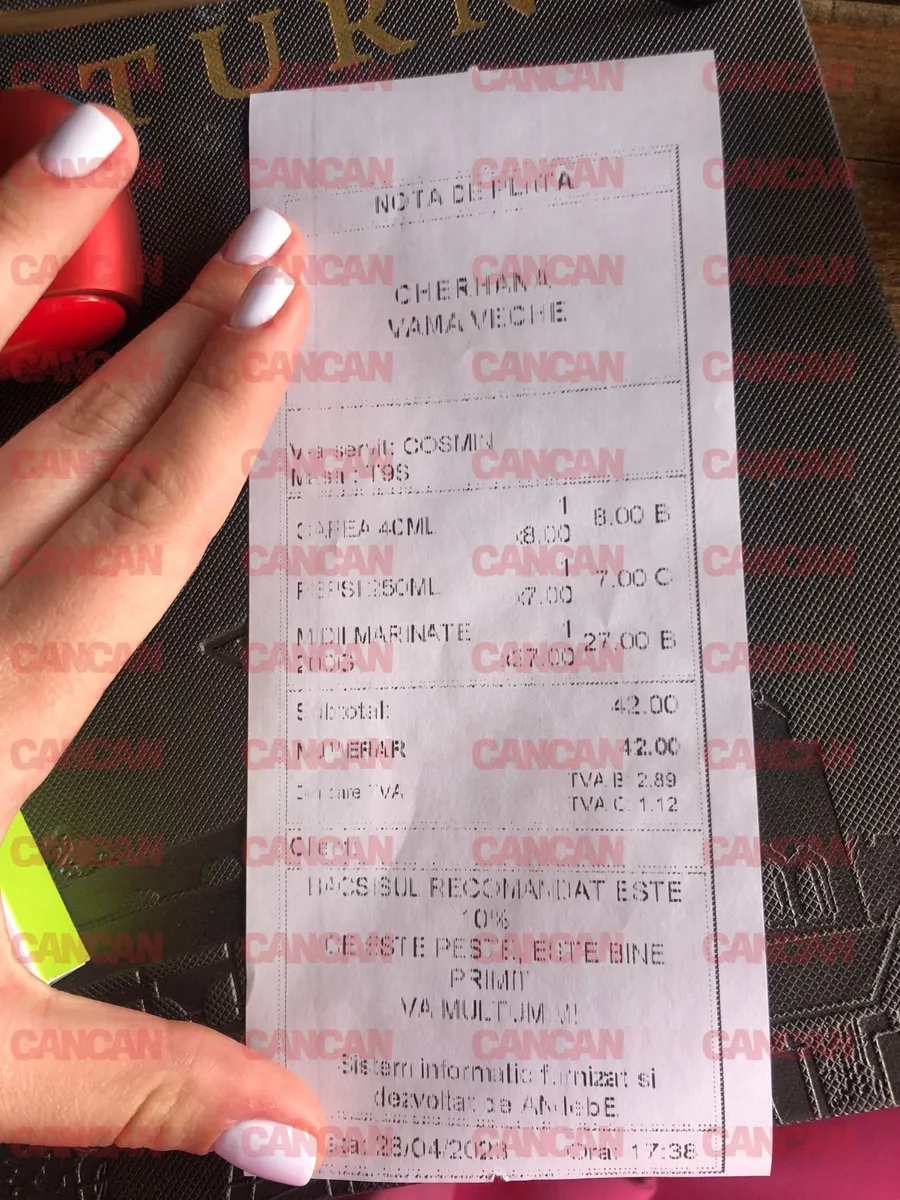 TURN
CANCAN
NOTA DE PLATA
CHERHANA
VAMA VECHE
V-a servit: COSMIN
Masa: T9S
CAFEA 40ML 1 x8.00 8.00 B
PEPSI 250ML 1 x7.00 7.00 C
MIDII MARINATE 1 27.00 B
200G x27.00
Subtotal: 42.00
NUMERAR 42.00
Din care TVA TVA B: 2.89
TVA C: 1.12
Client:
BACSISUL RECOMANDAT ESTE
10%
CE ESTE PESTE, ESTE BINE
PRIMIT
VA MULTUMIM!
Sistem informatic furnizat si
dezvoltat de
Data: 28/04/2023 Ora: 17:38